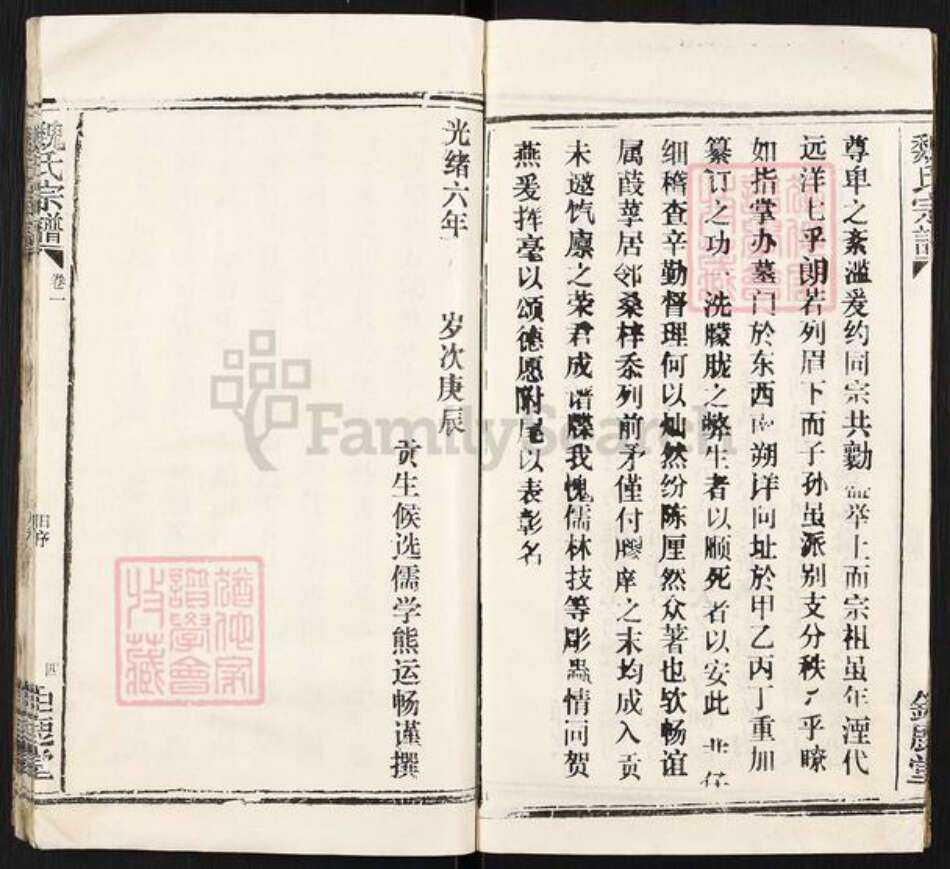 魏氏宗譜
尊卑之紊滥爰约同宗共勷 举上而宗祖虽年湮代
远洋七乎朗若列眉下而子孙虽派别支分秩々乎瞭
如指掌办墓门於东西 朔详向址於甲乙丙丁重加
纂订之功一洗朦胧之弊生者以顺死者以安此
细稽查辛勤督理何以灿然纷陈厘然众著也欤畅谊
属葭莩居邻桑梓忝列前矛僅付胶庠之末均成入贡
未邀饩廪之荣君成谱牒我愧儒林技等彫蟲情同贺
燕爰挥毫以颂德愿附尾以表彰名
光绪六年 岁次庚辰
贡生候选儒学熊运畅谨撰
魏氏宗譜
卷一
旧序
四
FamilySearch
譜學會
收藏